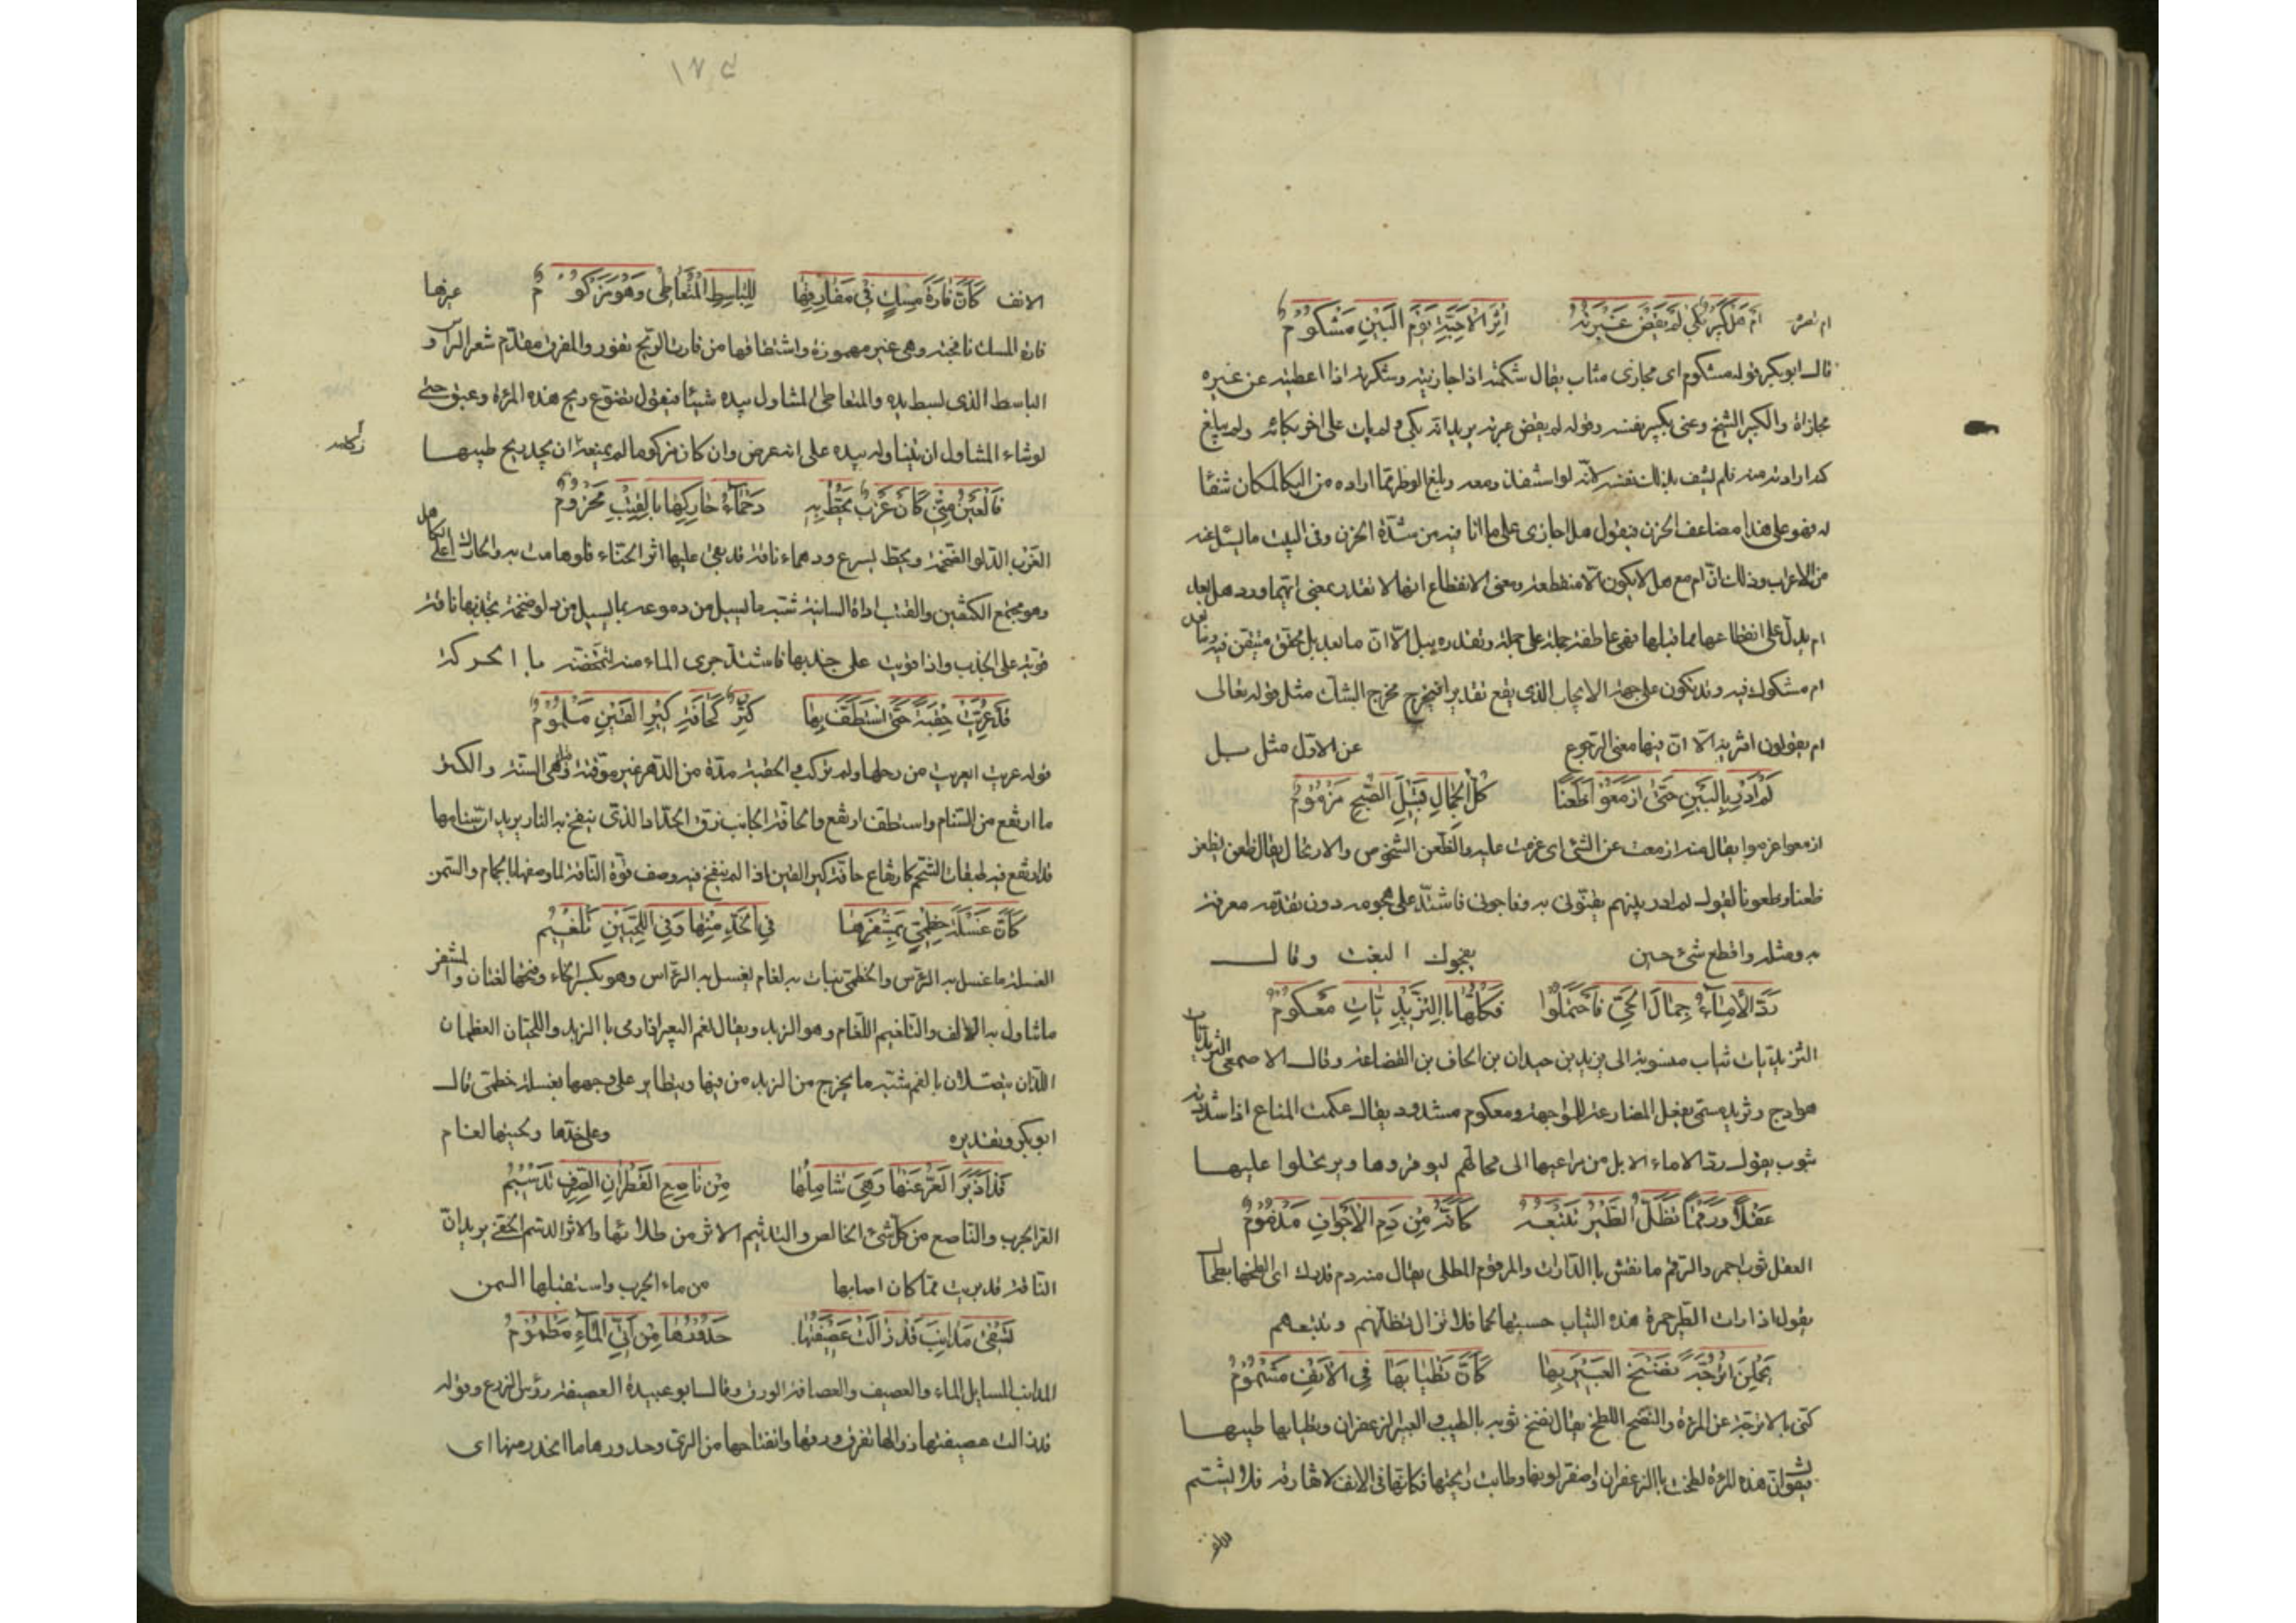 ام تصرم أَمْ هَلْ كَبِيرٌ بَكَى لَمْ يَقْضِ عَبْرَتَهُ إِثْرَ الْأَحِبَّةِ يَوْمَ الْبَيْنِ مَشْكُومُ
قال ابو بكر قوله مشكوم اى مجازى مثاب يقال شكمته اذا جازيته وشكرته اذا اعطيته عن غيره
مجازاة والكبير الشيخ وعنى بكبير نفسه وقوله لم يقض عبرته يريد انه بكى ولم يات على اخر بكائه ولم يبلغ
كما ارادته منه فلم يشف بذلك نفسه لانه لو استنفذ دمعه وبلغ الوطر مما اراده من البكا لكان شفا
له فهو على هذا مضاعف الحزن فيقول هل اجازى على ما انا فيه من شدة الحزن وفى البيت ما يسئل عنه
من الاعراب وذلك ان ام مع هل لا يكون الا منقطعة ومعنى الانقطاع انها لا تقدر بمعنى ايهما وورد هل بعد
ام يدل على انقطاعها مما قبلها فهى عاطفة جملة على جملة وتقديره ببل الا ان ما بعد بل محقق متيقن فيه وما بعد
ام مشكوك فيه وقد تكون على جهة الايجاب الذى يقع تقديرا فيخرج مخرج الشك مثل قوله تعالى
ام يقولون افتريه الا ان فيها معنى الرجوع عن الاول مثل بل
لَمْ أَدْرِ بِالْبَيْنِ حَتَّى أَزْمَعُوا ظَعَنًا كُلُّ الْجِمَالِ قُبَيْلَ الصُّبْحِ مَزْمُومُ
ازمعوا عزموا يقال منه ازمعت عن الشئ اى عزمت عليه والظعن الشخوص والارتحال يقال ظعن يظعن
ظعنا وظعونا لقوله لم ادر بينهم يفتونى به وفاجونى فاشتد على هجومه دون تقدمه معرفة
به ومثله وافظع شئ حين يفجوك البغت وقال
رَدَّ الْإِمَاءُ جِمَالَ الْحَيِّ فَاحْتَمَلُوا فَكُلُّهَا بِالتَّزِيدِيَّاتِ مَعْكُومُ
التزيديات ثياب منسوبة الى يزيد بن حيدان بن الحاف بن القضاعة وقال الاصمعى التزيديات
هوادج وتزيد سمى بفعل المضارعة للواجهة ومعكوم مشدود يقال عكمت المتاع اذا شددته
بثوب يقول رد الاماء الابل من مراعيها الى محالهم ليوقروها ويرتحلوا عليها
عَقْلًا وَرَقْمًا تَظَلُّ الطَّيْرُ تَتْبَعُهُ كَأَنَّهُ مِنْ دَمِ الْأَجْوَافِ مَدْمُومُ
العقل ثوب احمر والرقم ما نقش بالدارات والمرقوم المطلى يقال منه دم قدرك اى الطخها بطحال
يقول اذا رات الطير حمرة هذه الثياب حسبتها لحما فلا تزال تظلهم وتتبعهم
يَحْمِلْنَ أُتْرُجَّةً نَضْخُ الْعَبِيرِ بِهَا كَأَنَّ تَطْيَابَهَا فِي الْأَنْفِ مَشْمُومُ
كنى بالاترجة عن المرئة والنضخ اللطخ يقال نضخ ثوبه بالطيب والعبير الزعفران وتطيابها طيبها
يقول ان هذه المرئة لطخت بالزعفران واصفر لونها وطابت رائحتها فكانها فى الانف لا تفارقه فلا يشتم
الانف
١٢٥
الانف كَأَنَّ فَارَةَ مِسْكٍ فِي مَفَارِقِهَا لِلْبَاسِطِ الْمُتَعَاطِي وَهُوَ مَزْكُومُ غيرها
فارة المسك نافجته وهى غير مهموزة واشتقاقها من فارت الريح تفور والمفرق مقدم شعر الراس و
الباسط الذى بسط يده والمتعاطى المتناول بيده شيئا فيقول يتضوع ريح هذه المرئة وعبق حتى
لو شاء المتناول ان يتناوله بيده على انه عرض وان كان مزكوما لم يمنعه ان يجد ريح طيبها
زكامه
فَالْعَيْنُ مِنِّي كَأَنْ غَرْبٌ تَحُطُّ بِهِ دَهْمَاءُ حَارِكُهَا بِالْقِتْبِ مَحْزُومُ
الغرب الدلو الضخمة وتحط تسرع ودهماء ناقة قد بقى عليها اثر الحناء قلوها مت به والحارك اعلى الكاهل
وهو مجتمع الكتفين والقتب اداة السانية شبه ما يسيل من دموعه بما يسيل من دلو ضخمة تجذبها ناقة
قوية على الجذب واذا قويت على جذبها فاشتد جرى الماء منه لتمخضه با الحركة
قَدْ عُرِّيَتْ حِقْبَةً حَتَّى اسْتَطَفَّ بِهَا كِتْرٌ كَحَافَةِ كِيرِ الْقَيْنِ مَلْمُومُ
قوله عريت اعريت من رحلها ولم تركب والحقبة مدة من الدهر غير موقتة وقيل هى السنة والكتر
ما ارتفع من السنام واستطف ارتفع والحافة الجانب زق الحداد الذى ينفخ به النار يريد ان سنامها
قد ارتفع فيه طبقات الشحم كارتفاع حافة كير القين اذا لم ينفخ فيه وصف قوة الناقة لما وصفها بالجمام والسمن
كَأَنَّ غِسْلَةَ خِطْمِيٍّ بِمِشْفَرِهَا فِي الْخَدِّ مِنْهَا وَفِي اللَّحْيَيْنِ تَلْغِيمُ
الغسلة ما غسل به الراس والخطمى نبات به لغام يغسل به الراس وهو بكسر الخاء وفتحها لغتان والمشفر
ما تناول به الالف والتلغيم اللغام وهو الزبد ويقال لغم البعير اذا رمى با الزبد واللحيان العظمان
اللذان يتصلان بالفم شبه ما يخرج من الزبد من فيها ويتطاير على وجهها بغسلة خطمى قال
ابو بكر وتقديره وعلى خدها ولحييها لغام
قَدْ أَدْبَرَ الْعُرُّ عَنْهَا وَهِيَ شَامِلُهَا مِنْ نَاصِعِ الْقَطِرَانِ الصِّرْفِ تَدْسِيمُ
العر الجرب والناصع من كل شئ الخالص والتدسيم الاثر من طلائها والاثر الدسم الخفى يريد ان
الناقة قد بريت مما كان اصابها من ماء الجرب واستقبلها السمن
تَسْقِي مَذَانِبَ قَدْ زَالَتْ عَصِيفَتُهَا حُدُورُهَا مِنْ أَتِيِّ الْمَاءِ مَطْمُومُ
المذانب المسايل الماء والعصيف والعصافة الورق وقال ابو عبيدة العصيفة رؤس الزرع وقوله
قد زالت عصيفتها زوالها تفرق ورقها وانفتاحها من الرى وحدورها ما انحدر منها اى